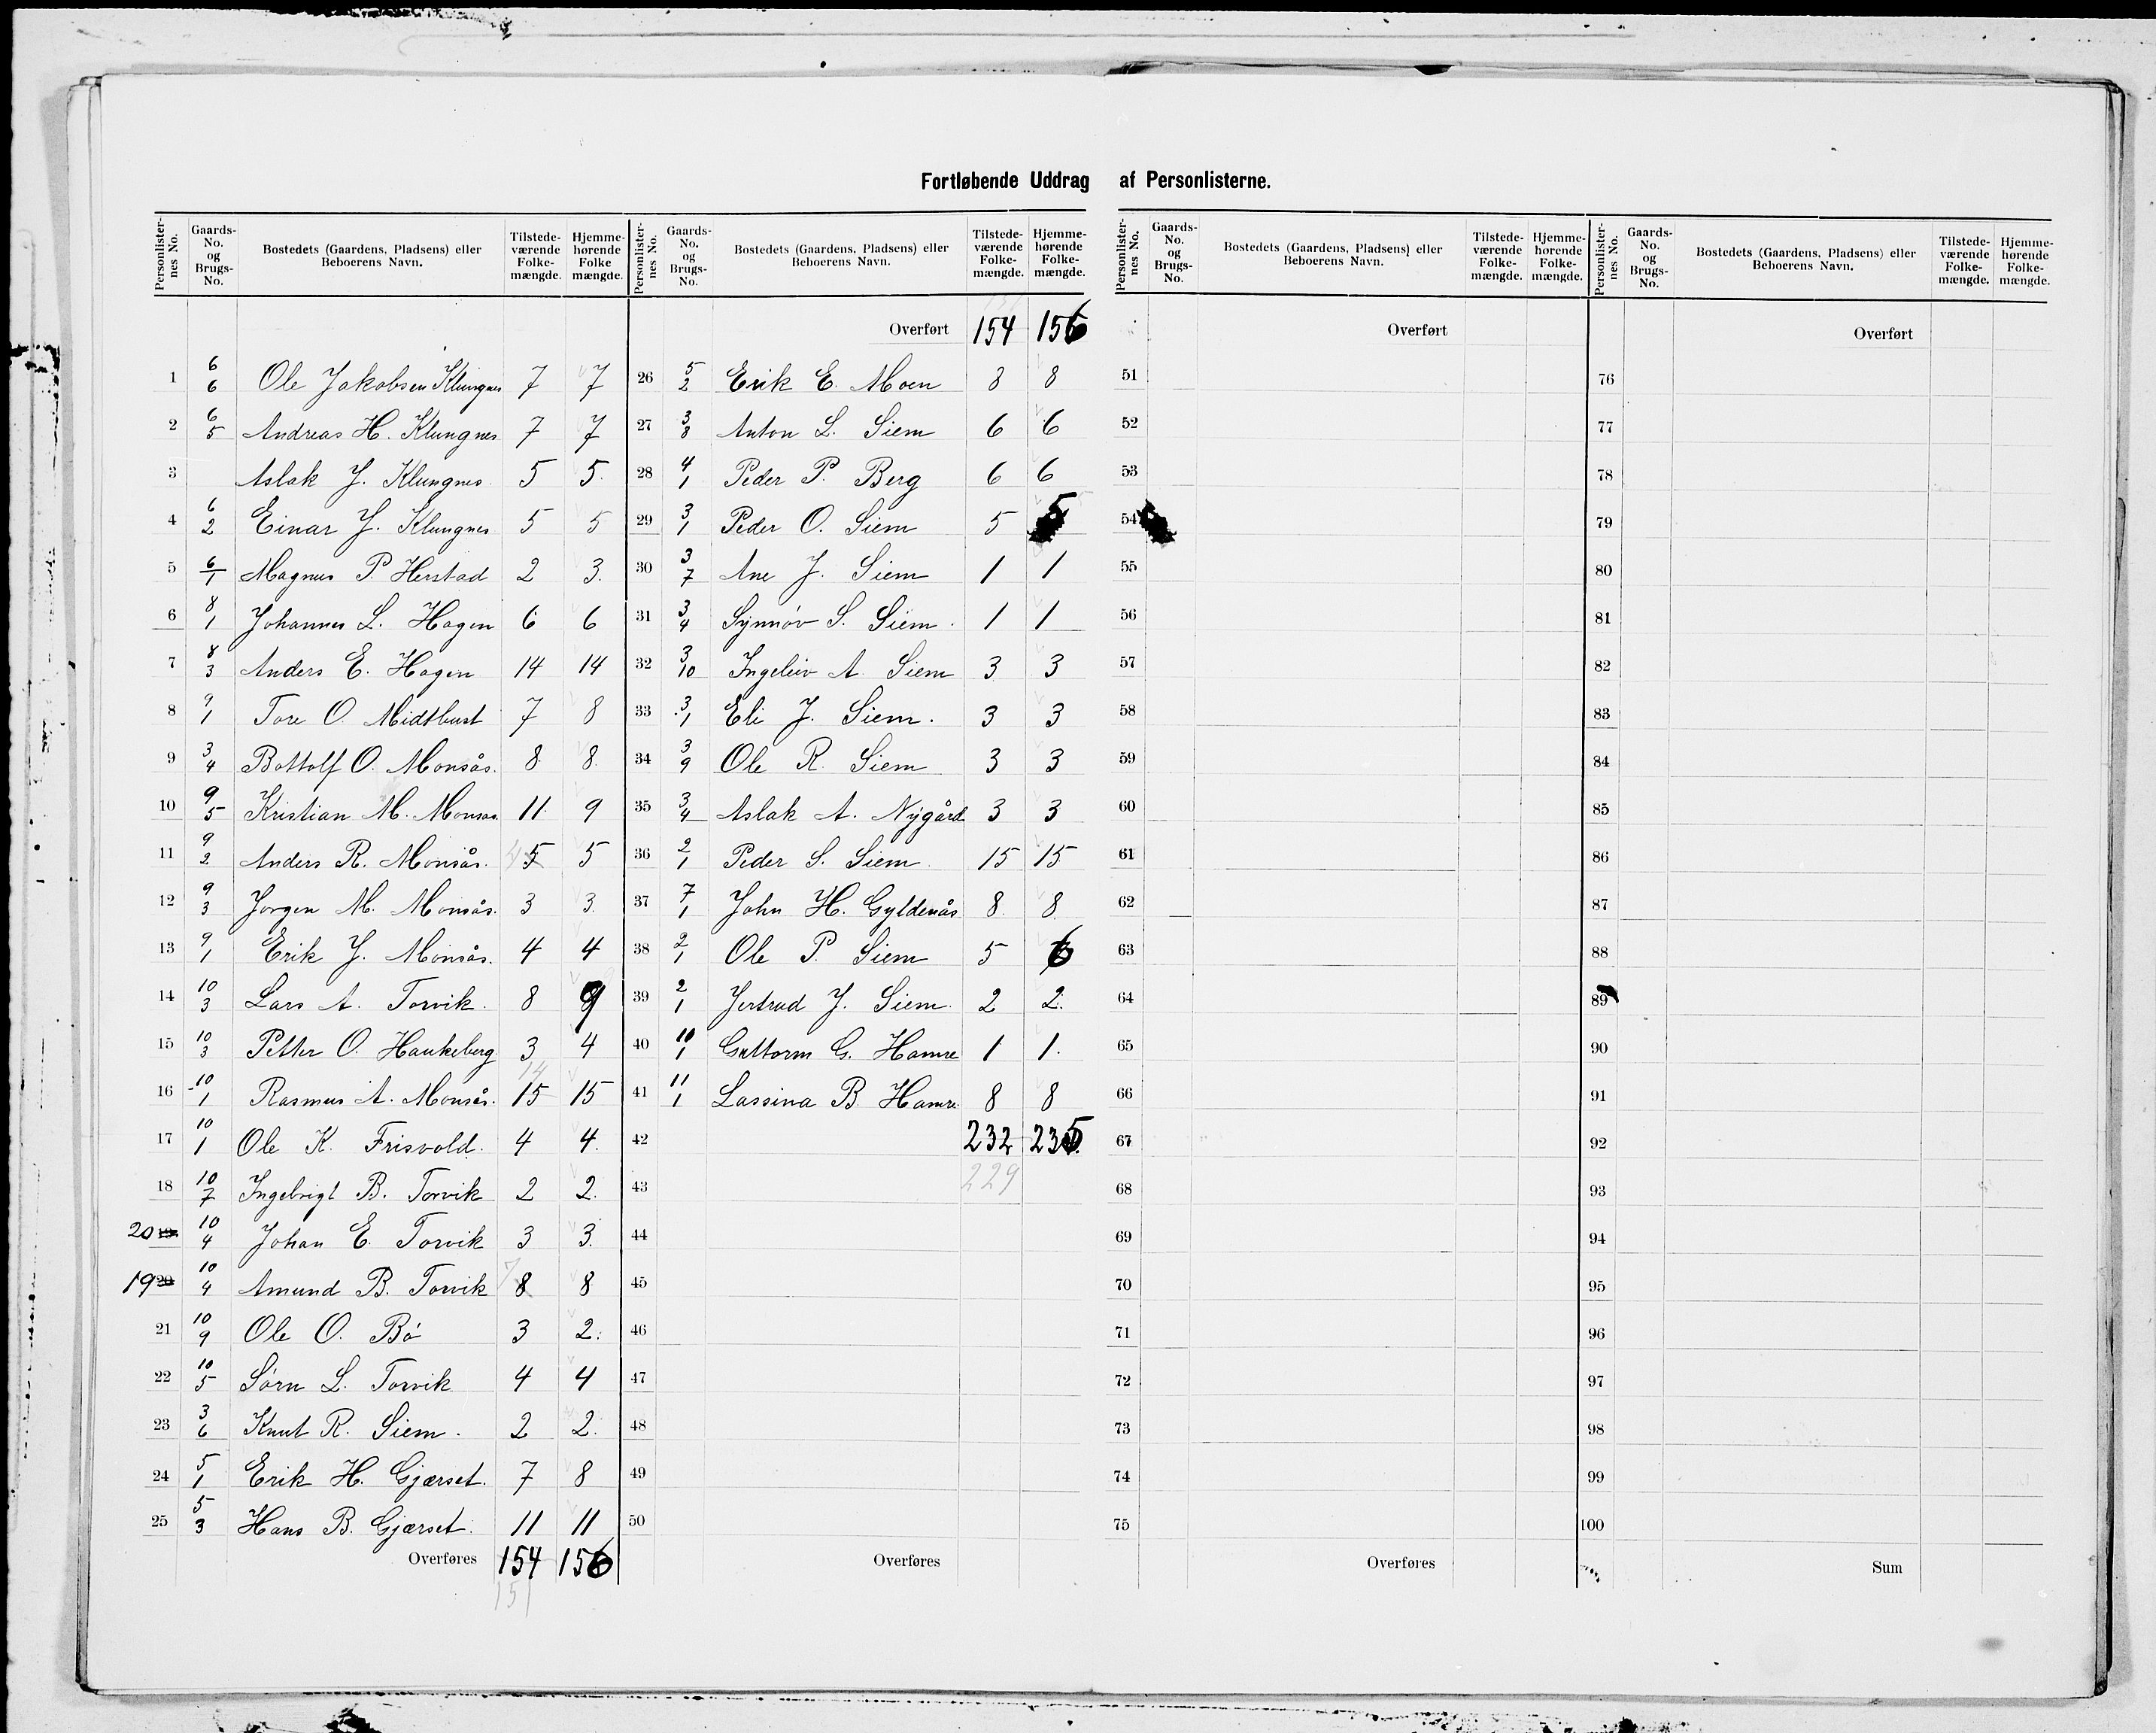 Fortløbende Uddrag af Personlisterne.
Personlister- nes No. Gaards- No. og Brugs- No. Bostedets (Gaardens, Pladsens) eller Beboerens Navn. Tilstede- værende Folke- mængde. Hjemme- hørende Folke mængde.
1 6/6 Ole Jakobsen Klungnes 7 7
2 6/5 Andreas H. Klungnes 7 7
3 Aslak J. Klungnes 5 5
4 6/2 Einar J. Klungnes 5 5
5 6/1 Magnus P. Herstad 2 3.
6 8/1 Johannes L. Hagen 6 6
7 8/3 Anders E. Hagen 14 14
8 9/1 Tore O. Midtbust 7 8
9 3/4 Bottolf O. Monsås. 8 8.
10 9/5 Kristian M. Monsås. 11 9
11 9/2 Anders R. Monsås. 4 5 5
12 9/3 Jørgen M. Monsås. 3 3.
13 9/1 Erik J. Monsås. 4 4
14 10/3 Lars A. Torvik. 8 9
15 10/3 Petter O. Haukeberg 3 4
16 10/1 Rasmus A. Monsås. 14 15 15
17 10/1 Ole K. Frisvold. 4 4.
18 10/7 Ingebrigt B. Torvik 2 2.
20 19 10/4 Johan E. Torvik 3 3.
19 20 10/4 Amund B. Torvik 7 8 8
21 10/9 Ole O. Bö 3 2.
22 10/5 Sörn L. Torvik 4 4
23 3/6 Knut R. Siem. 2 2.
24 5/1 Erik H. Gjærset. 7 8
25 5/3 Hans B. Gjærset. 11 11
Overføres 154 156
151
Personlister- nes No. Gaards- No. og Brugs- No. Bostedets (Gaardens, Pladsens) eller Beboerens Navn. Tilstede- værende Folke- mængde. Hjemme- hørende Folke- mængde.
Overført 154 156
26 5/2 Erik E. Moen 8 8
27 3/8 Anton L. Siem 6 6
28 4/1 Peder P. Berg 6 6
29 3/1 Peder O. Siem 5 5
30 3/7 Ane J. Siem 1 1
31 3/4 Synnöv S. Siem. 1 1
32 3/10 Ingeleiv A. Siem 3 3
33 3/1 Eli J. Siem. 3 3
34 3/9 Ole R. Siem 3 3
35 3/4 Aslak A. Nygård 3 3
36 2/1 Peder S. Siem. 15 15
37 7/1 John H. Gyldenås 8 8
38 2/1 Ole P. Siem 5 6
39 2/1 Jertrud J. Siem. 2 2.
40 10/1 Guttorm G. Hamre 1 1.
41 11/1 Lassina B. Hamre 8 8
42 232 235
43 229
44
45
46
47
48
49
50
Overføres
Personlister- nes No. Gaards- No. og Brugs- No. Bostedets (Gaardens, Pladsens) eller Beboerens Navn. Tilstede- værende Folke- mængde. Hjemme- hørende Folke- mængde.
Overført
51
52
53
54
55
56
57
58
59
60
61
62
63
64
65
66
67
68
69
70
71
72
73
74
75
Overføres
Personlister- nes No. Gaards- No. og Brugs- No. Bostedets (Gaardens, Pladsens) eller Beboerens Navn. Tilstede- værende Folke- mængde. Hjemme- hørende Folke- mængde.
Overført
76
77
78
79
80
81
82
83
84
85
86
87
88
89
90
91
92
93
94
95
96
97
98
99
100
Sum